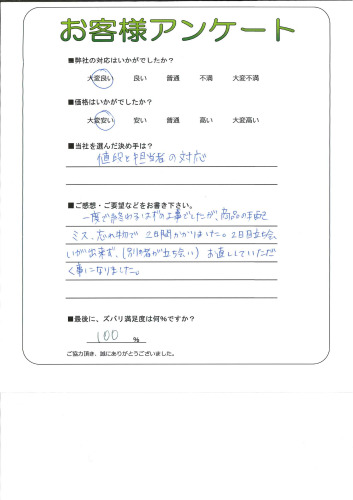 お客様アンケート
■弊社の対応はいかがでしたか?
大変良い 良い 普通 不満 大変不満
■価格はいかがでしたか?
大変安い 安い 普通 高い 大変高い
■当社を選んだ決め手は?
値段と担当者の対応
■ご感想・ご要望などをお書き下さい。
一度で終わるはずの工事でしたが、商品の手配
ミス、忘れ物で2日間かかりました。2日目立ち会
いが出来ず、(別の者が立ち会い)お直ししていただ
く事になりました。
■最後に、ズバリ満足度は何%ですか?
100 %
ご協力頂き、誠にありがとうございました。